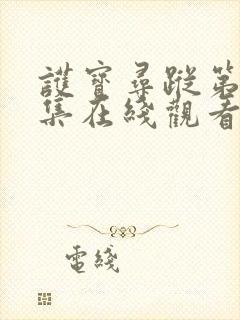 護寶尋蹤第
集在綫觀看
電綫